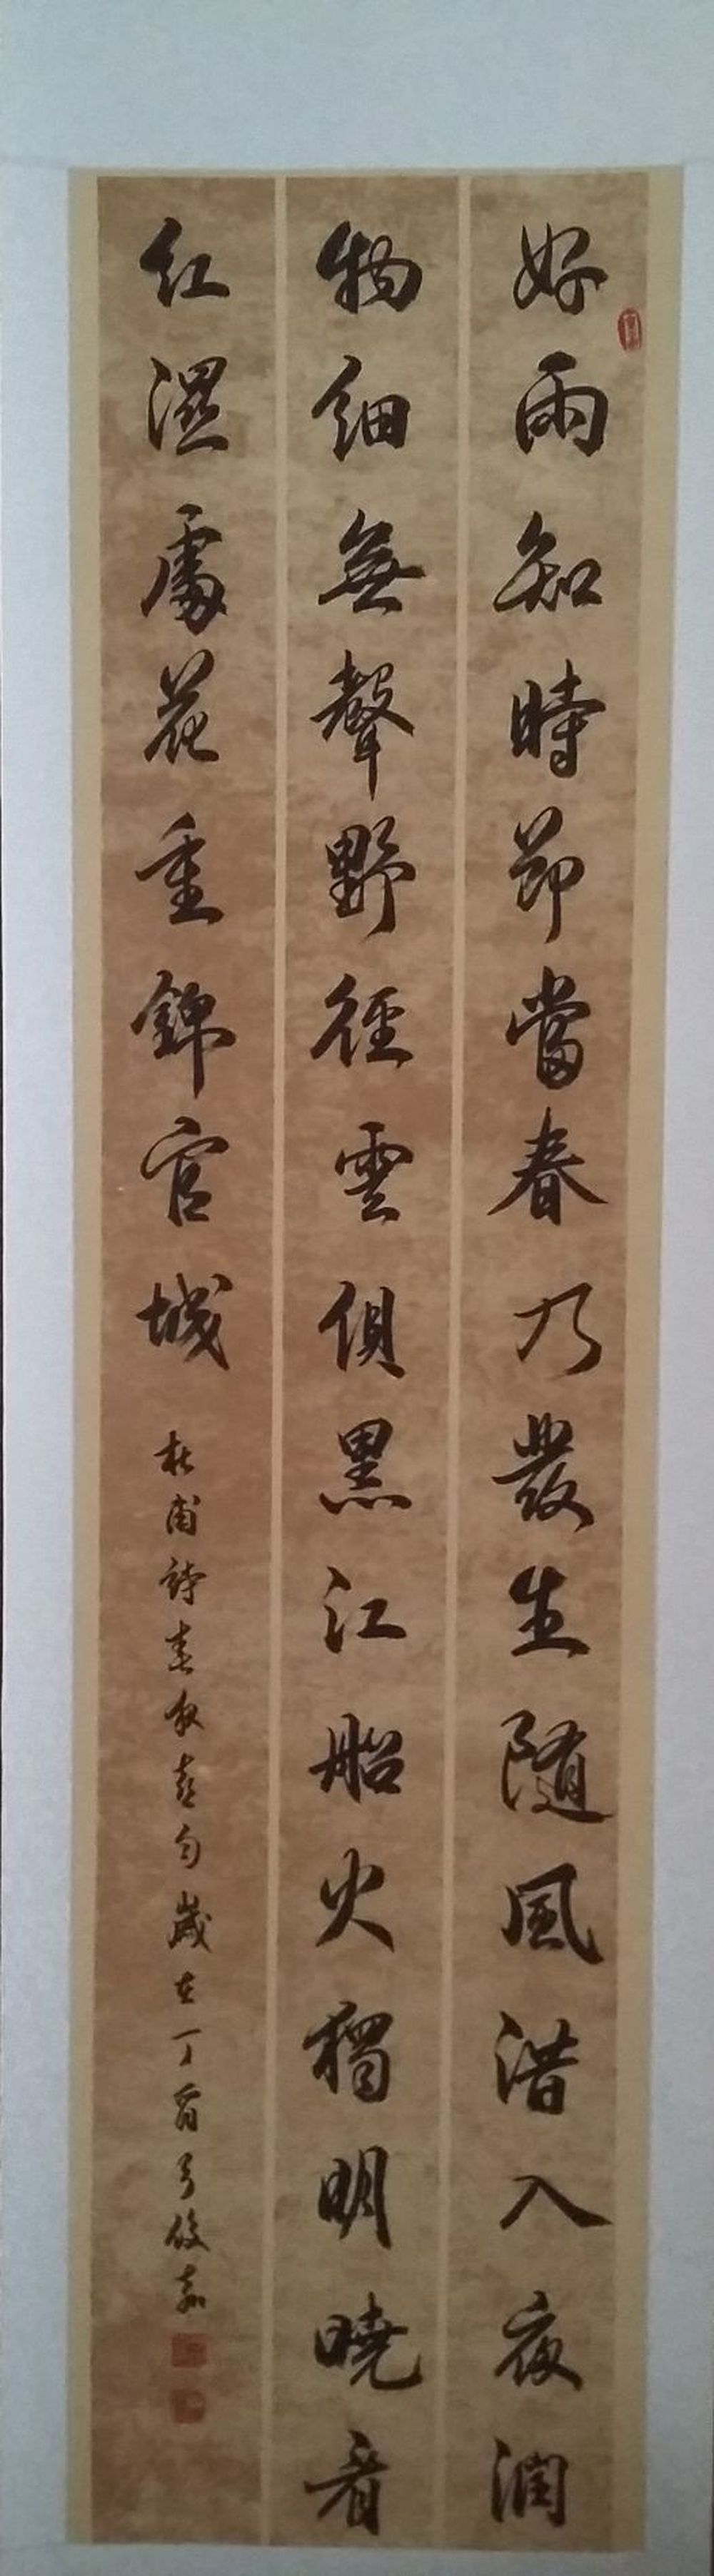 好雨知時節當春乃發生随風潜入夜潤
物細無聲野徑雲俱黑江船火獨明曉看
红濕處花重錦官城
杜甫詩春夜喜歲在丁酉